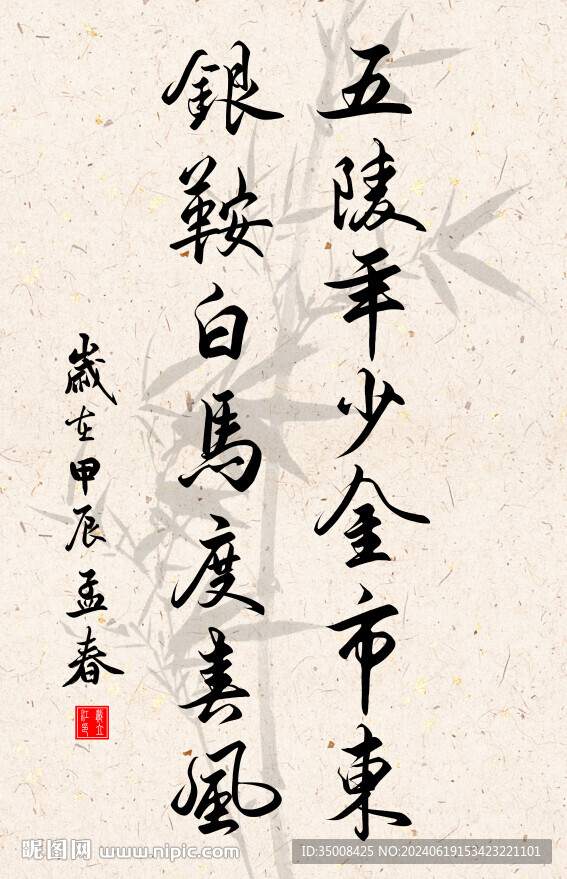 五陵年少金市東
銀鞍白馬度春風
歲在甲辰孟春
昵图网 www.nipic.com
ID:35008425 NO:20240619153423221101